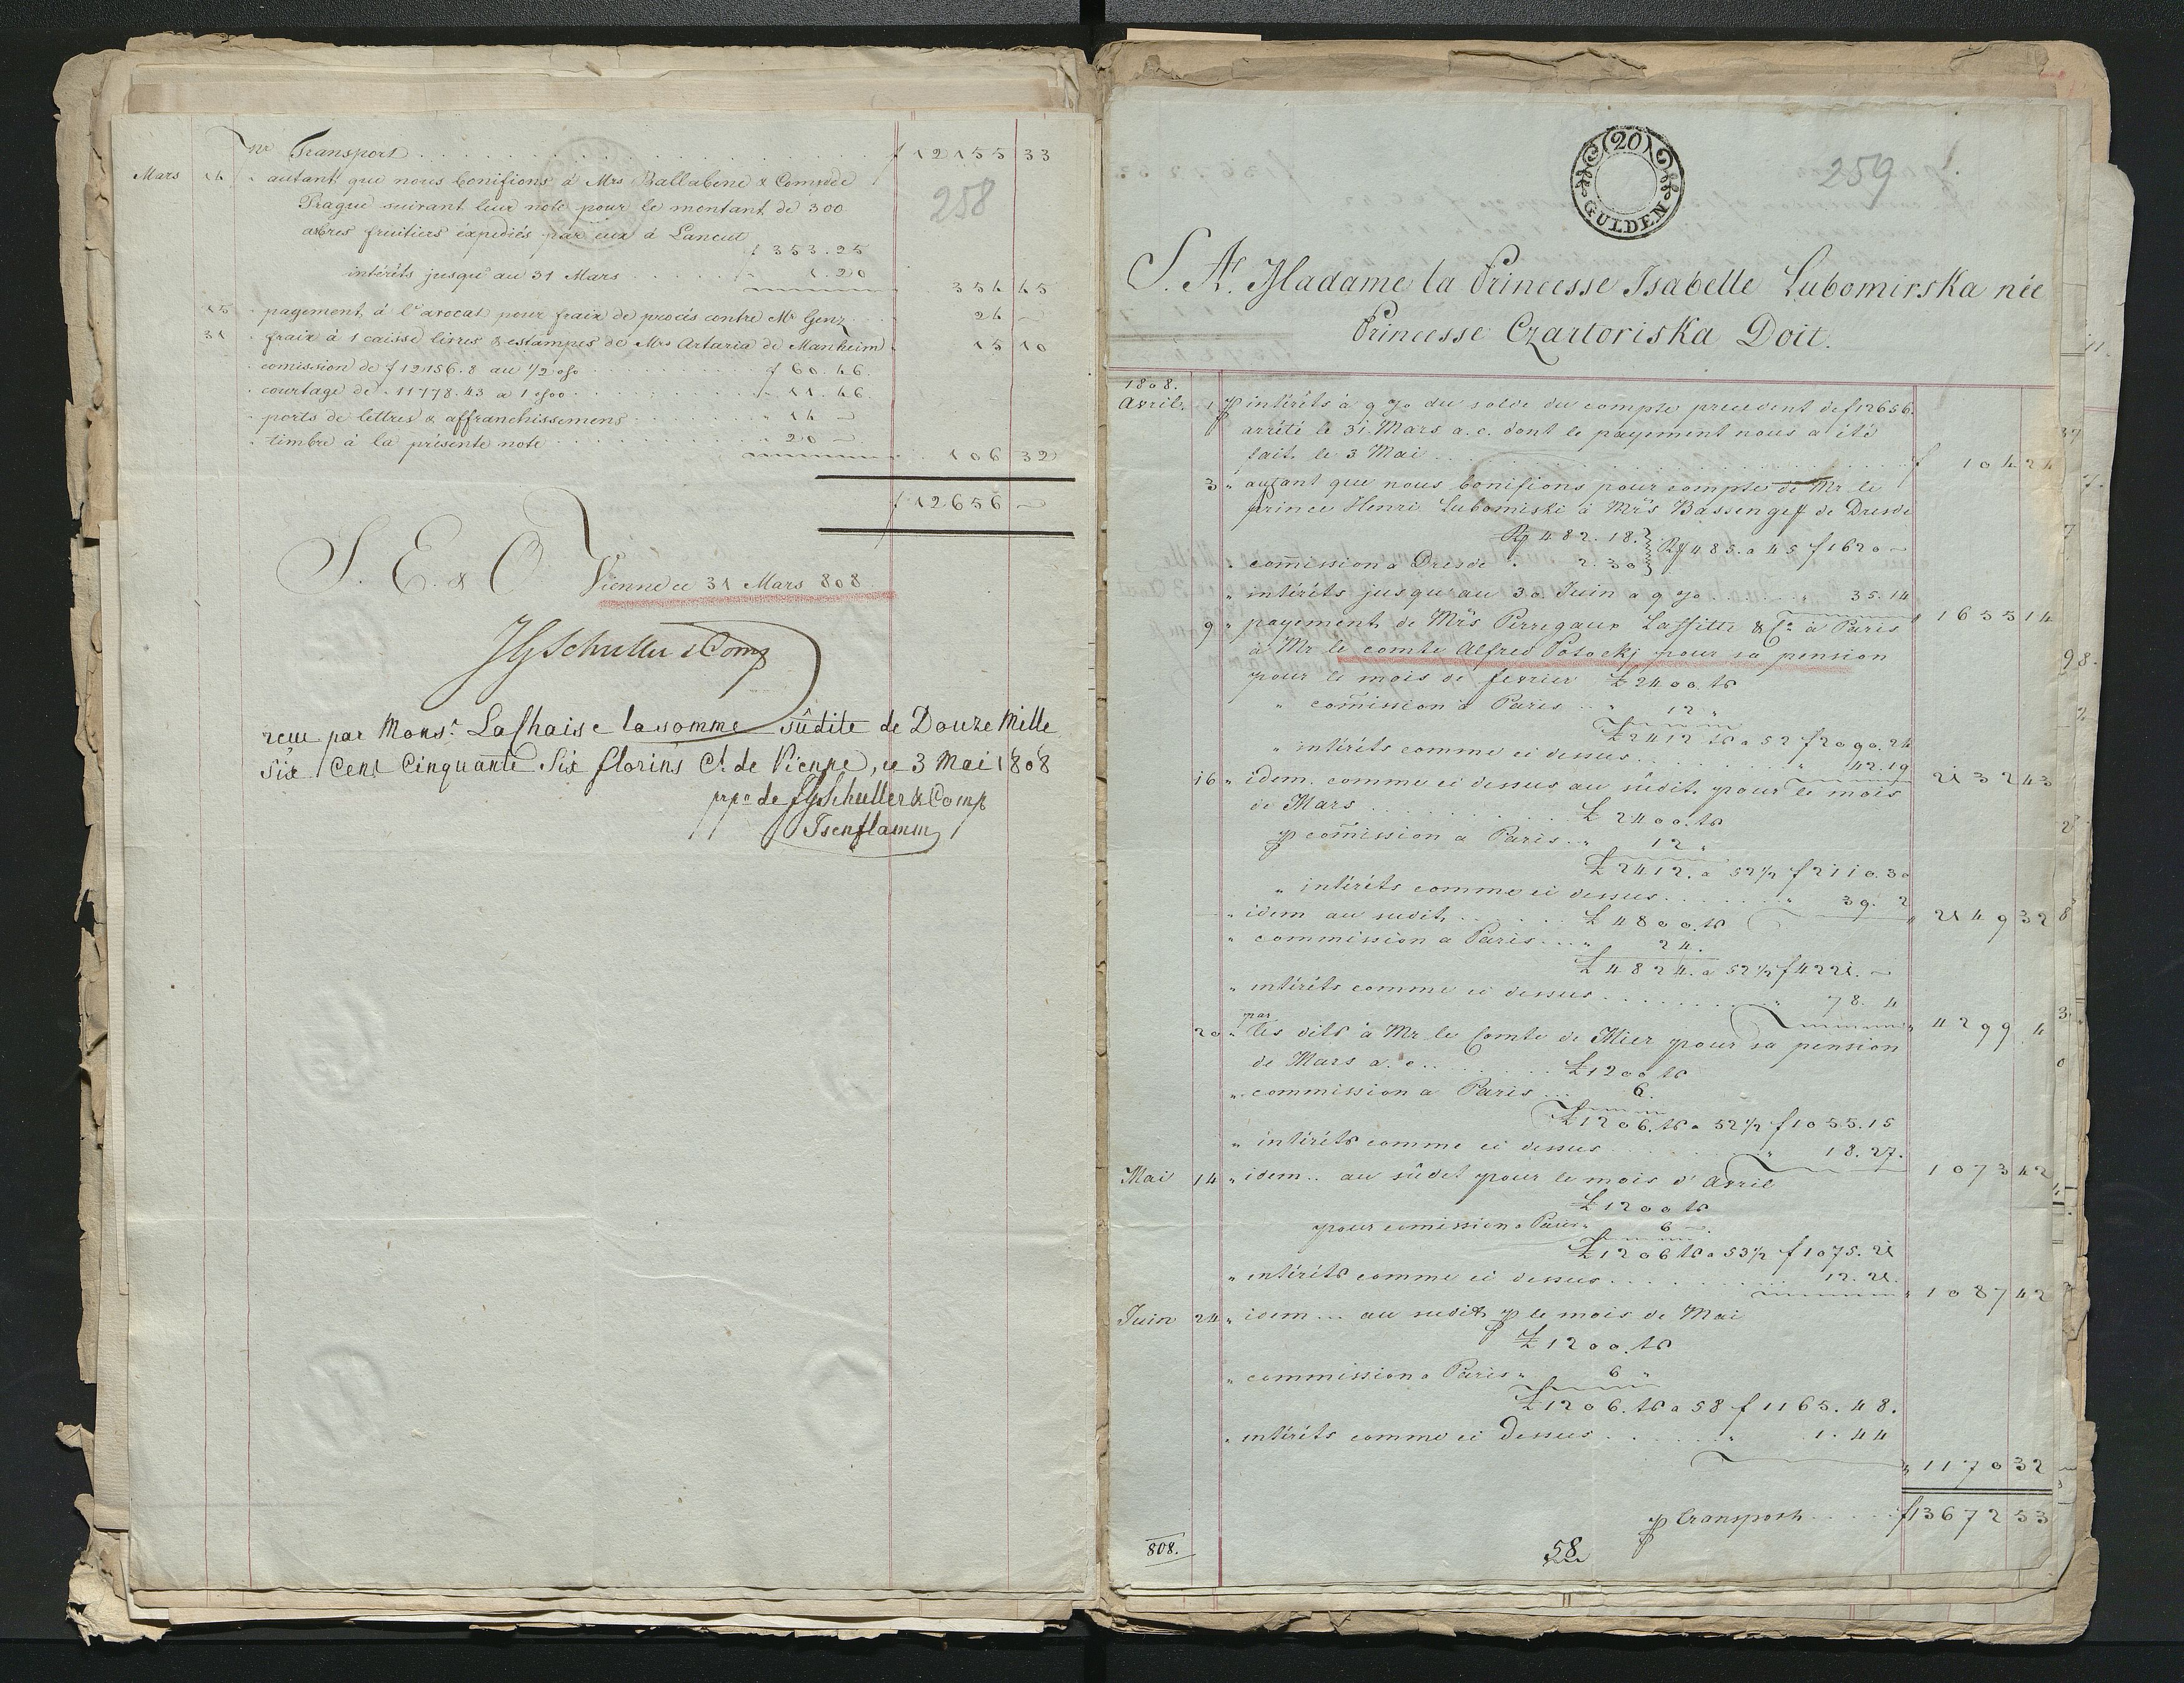 pr Transport . . . . . f 12155 33
258
Mars 14 " autant que nous bonifions à Mrs Ballabene & Comp de
Prague suivant leur note pour le montant de 300
arbres fruitiers expediés par eux à Lancut
f 353.25
intérêts jusqu'au 31 Mars . . . . . 1.20
354 45
15 " payement à l'avocat pour fraix de procès contre Mr Genz . . 24 —
31 " fraix à 1 caisse livres & estampes de Mrs Artaria de Manheim " 15 10
" comission de f 12156.8 au ½ %o . . . f 60.46.
" courtage de " 11778.43 a 1 %oo . . . " 11.46.
" ports de lettres & affranchissemens . . . " 14 —
" timbre à la présente note . . . " 20 —
106 32
f 12656 —
S. E. & O.
Vienne ce 31 Mars 808
JGSchuller & Comp
recu par Monsr. LaChaise la somme sûdite de Douze Mille
Six Cent Cinquante Six florins Ct. de Vienne, ce 3 Mai 1808
prpa de JGSchuller & Comp
Isenflamm
20
GULDEN
259
S. A. Madame la Princesse Isabelle Lubomirska née
Princesse Czartoriska Doit.
1808.
Avril. 1 p intérêts à 9 %o du solde du compte precedent de f 12656.
arrêté le 31. Mars a. c. dont le payement nous a été
fait le 3 Mai . . . . . f 104 24
3 " autant que nous bonifions pour compte de Mr le
prince Henri Lubomiski à Mrs Bassenge de Dresde
Rf 482. 18. Rf 485. a 45 f 1620 —
" comission a Dresde . 2. 30
" intérêts jusqu'au 30 Juin a 9 %o . . . " 35.14
" 1655 14
9 " payement de Mrs Perregaux Laffitte & Ce à Paris
à Mr le comte Alfred Potockj pour sa pension
pour le mois de fevrier £ 2400. ts
" comission à Paris . . " 12 "
£ 2412 ts a 52 f 2090. 24
" intérêts comme ci dessus . . . " 42.19
2132 43
16 " idem. comme ci dessus au sûdit pour le mois
de Mars . . . £ 2400. ts
p comission a Paris . . " 12 "
£ 2412. a 52½ f 2110. 30
" intérêts comme ci dessus . . . " 39. 2
" 2149 32
" idem au sudit . . . £ 4800. ts
" commission a Paris . . . " 24.
£ 4824. a 52½ f 4221. —
" intérêts comme ci dessus . . . " 78. 4
" 4299 4
par
20 " les dits à Mr le Comte de Mier pour sa pension
de Mars a. c. . . . £ 1200 ts
" commission a Paris . . . 6.
£ 1206. ts a 52½ f 1055.15
" intérêts comme ci dessus . . . " 18.27.
1073 42
Mai 14 " idem . . au sûdit pour le mois d'avril
£ 1200 ts
pour comission a Paris " 6 —.
£ 1206 ts a 53½ f 1075. 21
" intérêts comme ci dessus . . . 12. 21.
" 1087 42
Juin 24 " idem . . . au sudit p le mois de Mai
£ 1200. ts
" commission a Paris " 6 "
£ 1206. ts a 58 f 1165. 48.
" intérêts comme ci Dessus . . . " 1. 44
" 1170 32
p transport . . . f 13672 53
808.
58